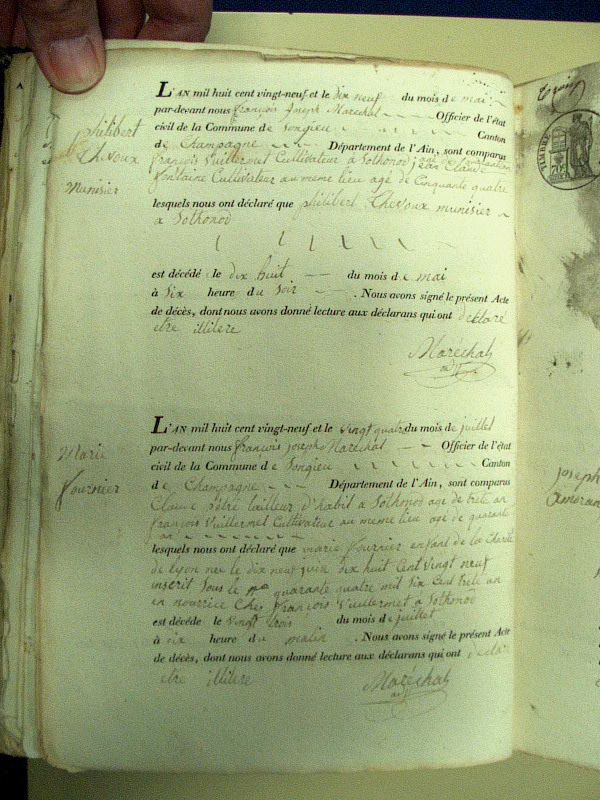 L'AN mil huit cent vingt-neuf et le dix neuf du mois de mai
par-devant nous françois Joseph Marechal Officier de l'état
civil de la Commune de Songieu Canton
de Champagne Département de l'Ain, sont comparus
françois Vuillermet Cultivateur a Sothonod jean Claude
fontaine Cultivateur au meme lieu age de Cinquante quatre
philibert
Chevoux
Munisier
lesquels nous ont déclaré que philibert Chevoux munisier
a Sothonod
est décédé le dix huit du mois de mai
à Six heure du Soir . Nous avons signé le présent Acte
de décès, dont nous avons donné lecture aux déclarans qui ont declaré
etre illitere
Marechal
L'AN mil huit cent vingt-neuf et le vingt quatre du mois de juillet
par-devant nous françois joseph Marechal Officier de l'état
civil de la Commune de Songieu Canton
de Champagne Département de l'Ain, sont comparus
Marie
fournier
Claude tailleur d'habit a Sothonod age de trete an
françois Vuillermet Cultivateur au meme lieu age de quarante
an
lesquels nous ont déclaré que marie fournier enfant de la Charité
de Lyon nee le dix neuf juin dix huit Cent vingt neuf
inscrit Sous le quarante quatre mil Six Cent trete an
en nourrice Chez françois Vuillermet a Sothonod
est décédé le vingt trois du mois de juillet
à six heure du matin . Nous avons signé le présent Acte
de décès, dont nous avons donné lecture aux déclarans qui ont declaré
etre illitere
Marechal
TIMBRE
joseph